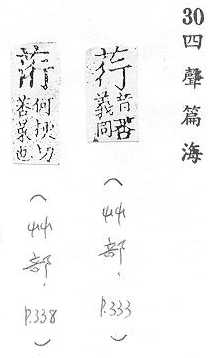 30 四聲篇海
荇 音杏義同
（艸部，P.333）
何梗切
菜也
（艸部，P.338）